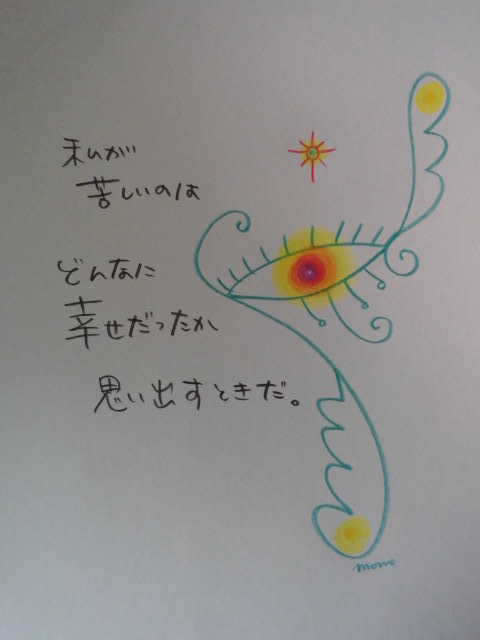 私が
苦しいのは
どんなに
幸せだったか
思い出すときだ。
momo